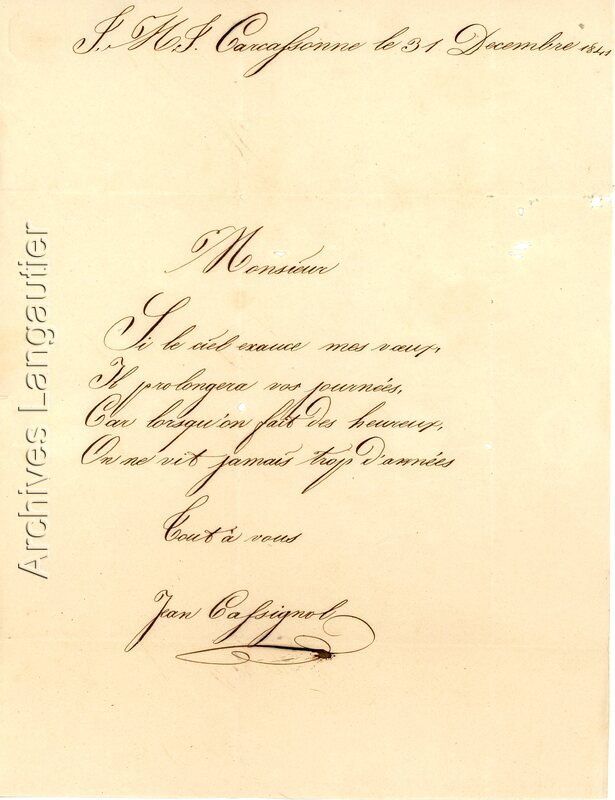 J. M. J. Carcassonne le 31 Decembre 1841
Monsieur
Si le ciel exauce mes vœux,
Il prolongera vos journées,
Car lorsqu'on fait des heureux,
On ne vit jamais trop d'années
Tout à vous
Jean Cassignol
Archives Langautier